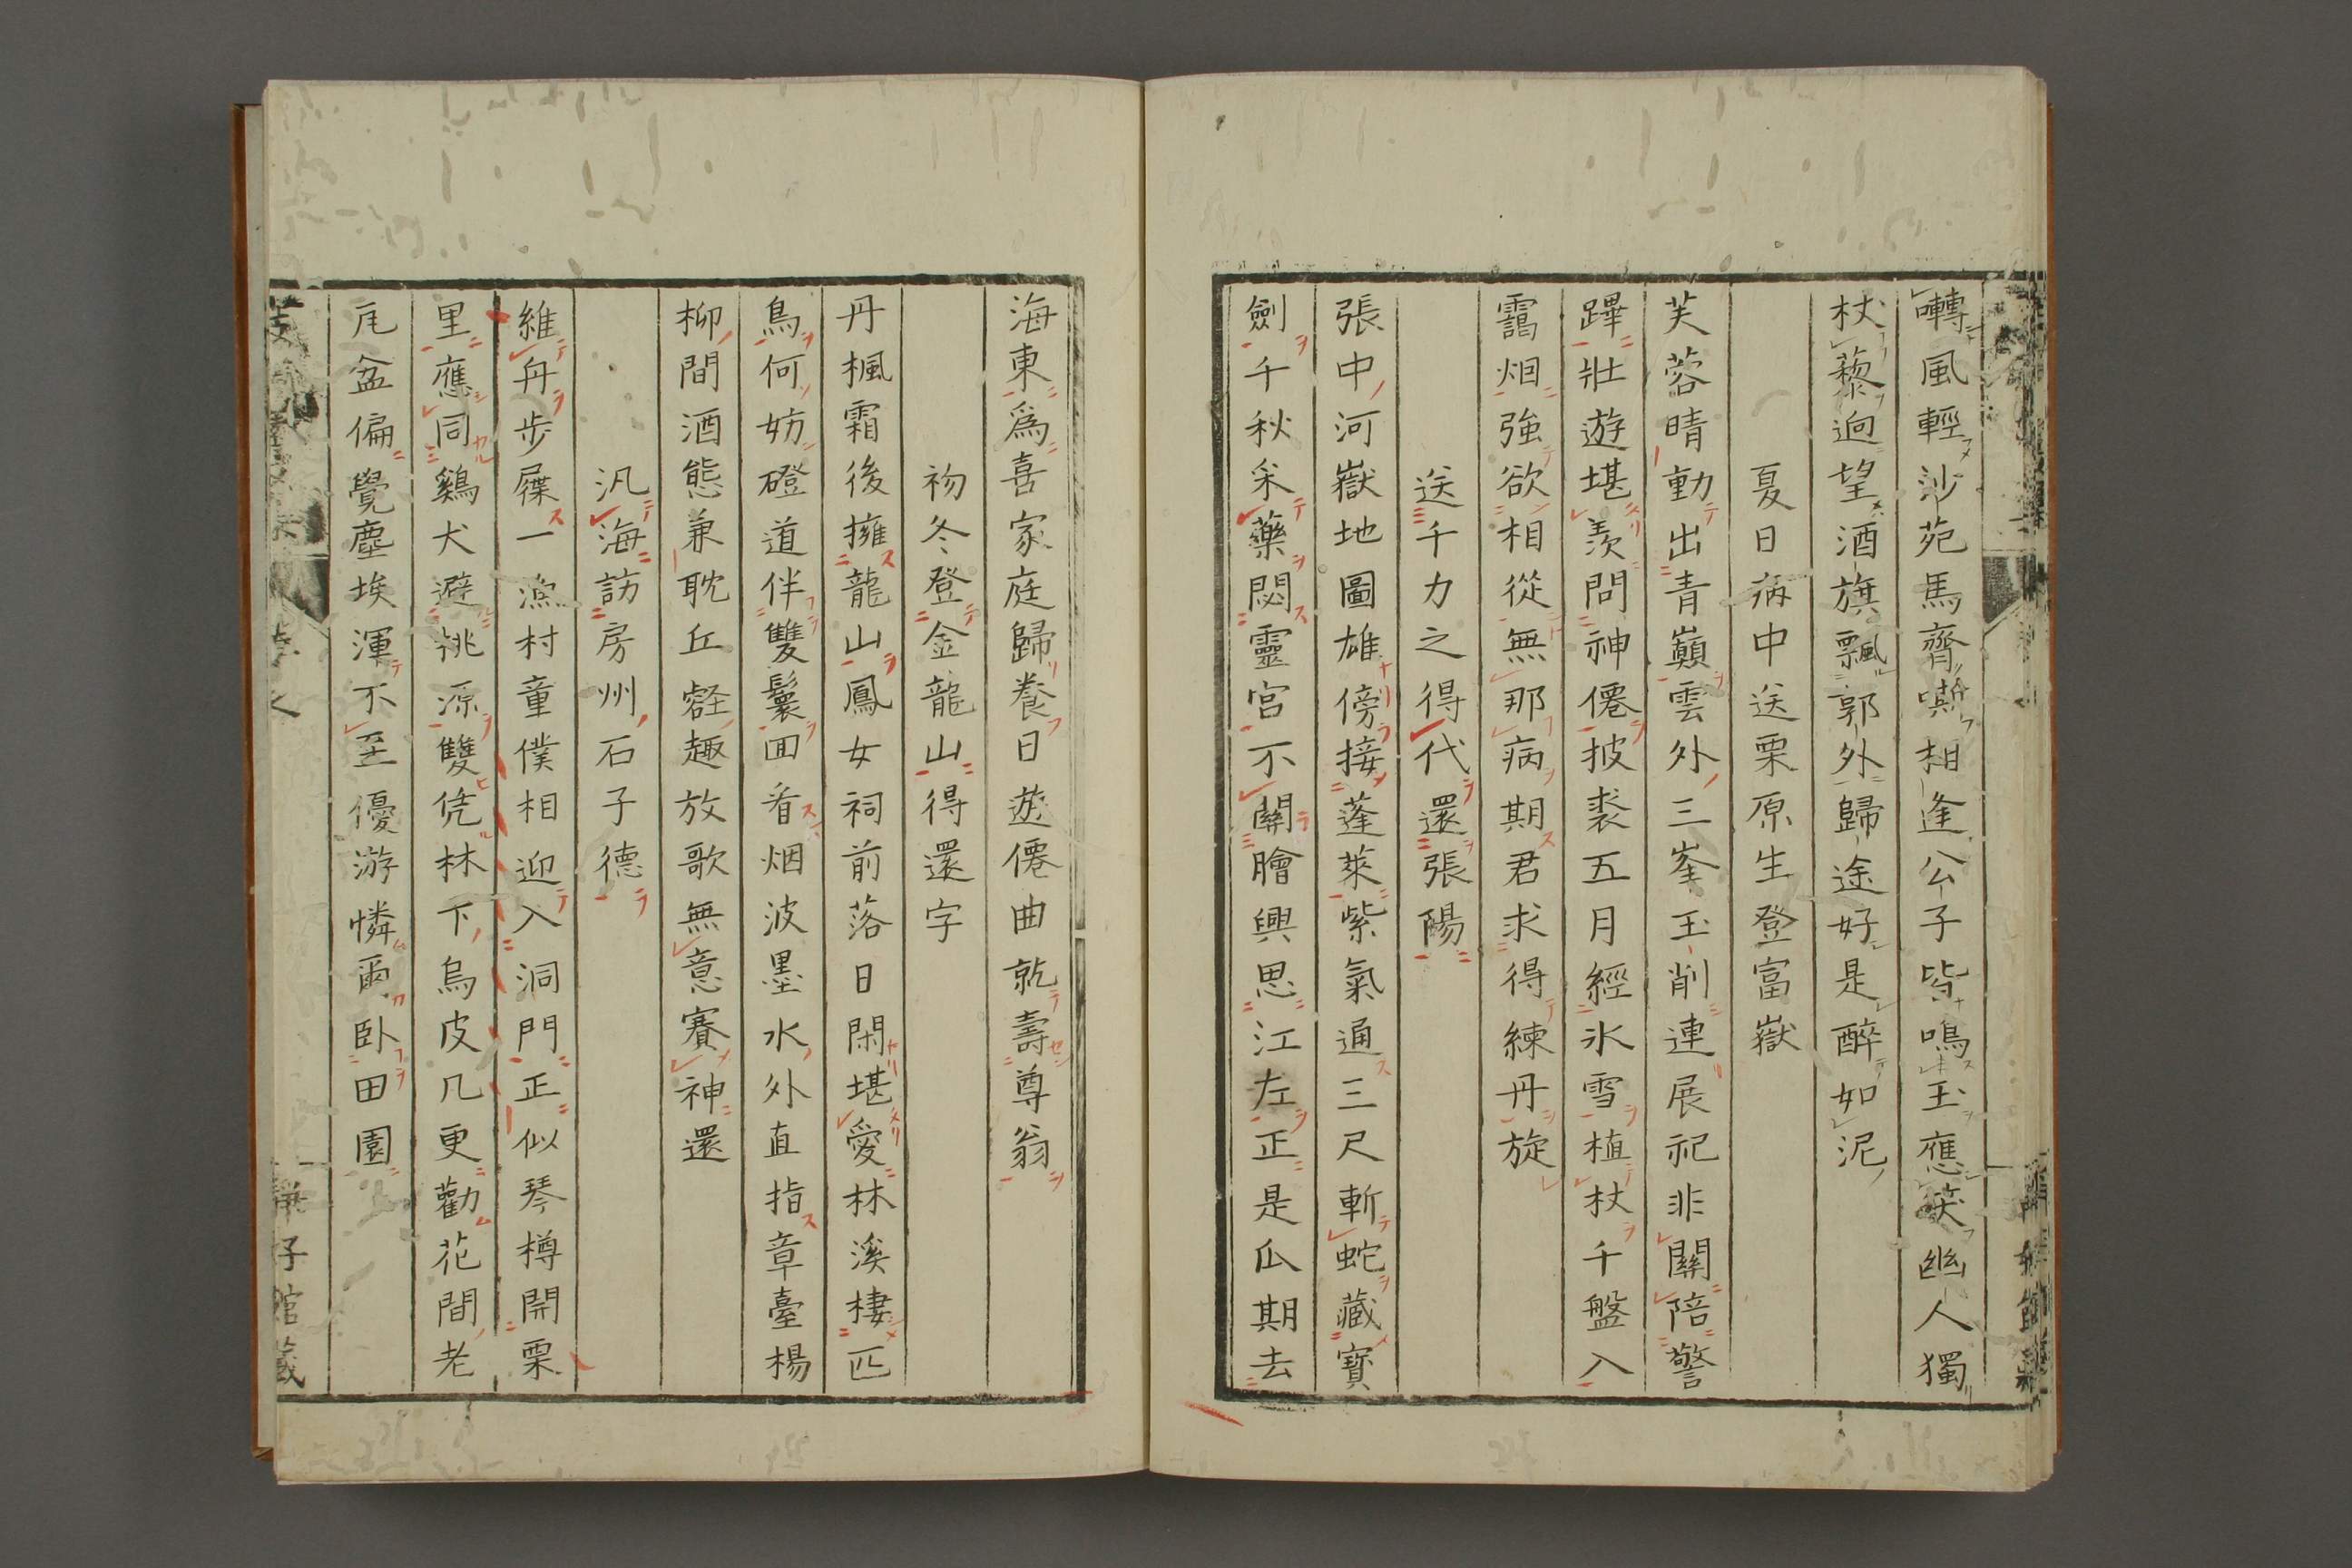 囀風輕沙苑馬齊嘶相逢公子皆鳴玉應笑幽人獨
杖藜逈望酒旗飄郭外歸途好是醉如泥
夏日病中送栗原生登富嶽
芙蓉晴動出青巓雲外三峯玉削連展祀非關陪警
蹕壯遊堪羨問神僊披裘五月經氷雪植杖千盤入
靄烟強欲相從無那病期君求得練丹旋
送千力之得代還張陽
張中河嶽地圖雄傍接蓬萊紫氣通三尺斬蛇藏寶
劍千秋采藥閟靈宮不關膾興思江左正是瓜期去
海東爲喜家庭歸養日遊僊曲就壽尊翁
初冬登金龍山得還字
丹楓霜後擁龍山鳳女祠前落日閑堪愛林溪棲匹
鳥何妨磴道伴雙鬟囬看烟波墨水外直指章臺楊
柳間酒態兼耽丘壑趣放歌無意賽神還
汎海訪房州石子德
維舟步屧一漁村童僕相迎入洞門正似琴樽開栗
里應同鷄犬避桃源雙凭林下烏皮几更勸花間老
瓦盆偏覺塵埃渾不至優游憐爾臥田園